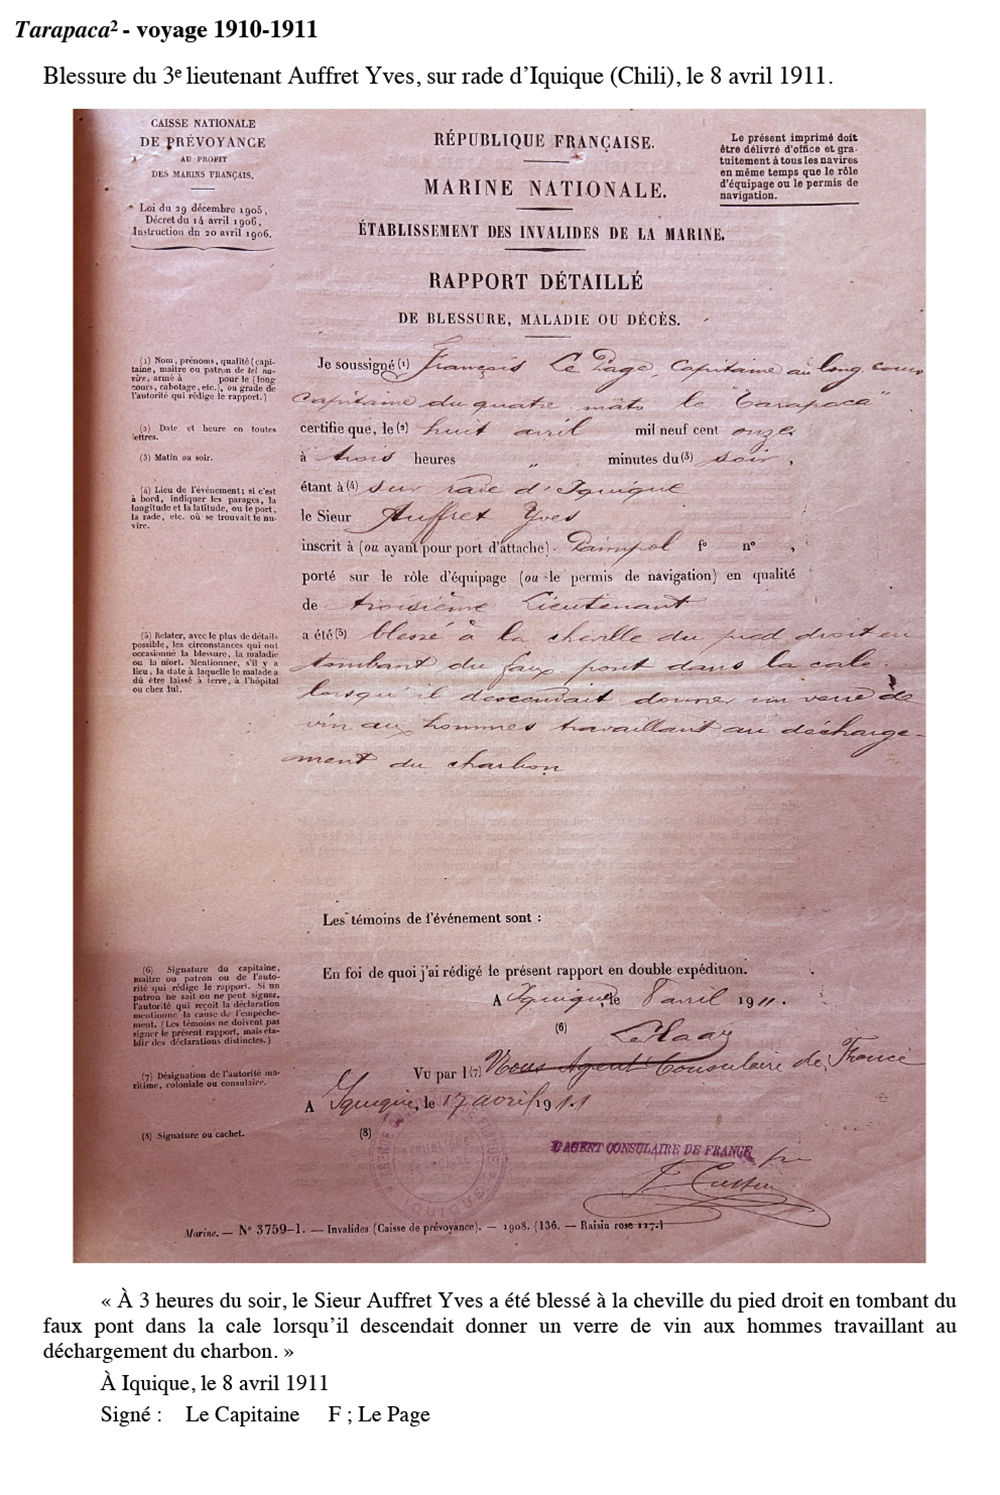 Tarapaca² - voyage 1910-1911
Blessure du 3e lieutenant Auffret Yves, sur rade d’Iquique (Chili), le 8 avril 1911.
CAISSE NATIONALE
DE PRÉVOYANCE
AU PROFIT
DES MARINS FRANÇAIS.
Loi du 29 décembre 1905,
Décret du 14 avril 1906,
Instruction dn 20 avril 1906.
RÉPUBLIQUE FRANÇAISE.
MARINE NATIONALE.
ÉTABLISSEMENT DES INVALIDES DE LA MARINE.
RAPPORT DÉTAILLÉ
DE BLESSURE, MALADIE OU DÉCÈS.
Le présent imprimé doit
être délivré d'office et gra-
tuitement à tous les navires
en même temps que le rôle
d'équipage ou le permis de
navigation.
(1) Nom, prénoms, qualité (capi-
taine, maître ou patron de tel na-
vire, armé à pour le (long
cours, cabotage, etc.), ou grade de
l'autorité qui rédige le rapport.)
(2) Date et heure en toutes
lettres.
(3) Matin ou soir.
(4) Lieu de l'événement; si c'est
à bord, indiquer les parages, la
longitude et la latitude, ou le port,
la rade, etc. où se trouvait le na-
vire.
(5) Relater, avec le plus de détails
possible, les circonstances qui ont
occasionné la blessure, la maladie
ou la mort. Mentionner, s'il y a
lieu, la date à laquelle le malade a
dû être laissé à terre, à l'hôpital
ou chez lui.
Je soussigné (1) François Le Page, Capitaine au long cours
Capitaine du quatre mâts le "Tarapaca"
certifie que, le (2) huit avril mil neuf cent onze
à trois heures " minutes du (3) soir,
étant à (4) sur rade d'Iquique
le Sieur Auffret Yves
inscrit à (ou ayant pour port d'attache) Paimpol f° n° ,
porté sur le rôle d'équipage (ou le permis de navigation) en qualité
de troisième Lieutenant
a été (5) blessé à la cheville du pied droit en
tombant du faux pont dans la cale
lorsqu'il descendait donner un verre de
vin aux hommes travaillant au décharge-
ment du charbon
Les témoins de l'événement sont :
(6) Signature du capitaine,
maître ou patron ou de l'auto-
rité qui rédige le rapport. Si un
patron ne sait ou ne peut signer,
l'autorité qui reçoit la déclaration
mentionne la cause de l'empêche-
ment. (Les témoins ne doivent pas
signer le présent rapport, mais éta-
blir des déclarations distinctes.)
(7) Désignation de l'autorité ma-
ritime, coloniale ou consulaire.
(8) Signature ou cachet.
En foi de quoi j'ai rédigé le présent rapport en double expédition.
A Iquique, le 8 avril 1911.
(6)
Vu par l (7) Nous Agent Consulaire de France
A Iquique, le 17 avril 1911
(8)
L'AGENT CONSULAIRE DE FRANCE
IQUIQUE
Marine. — N° 3759-1. — Invalides (Caisse de prévoyance). — 1908. (136. — Raisin rose 117.)
« À 3 heures du soir, le Sieur Auffret Yves a été blessé à la cheville du pied droit en tombant du
faux pont dans la cale lorsqu’il descendait donner un verre de vin aux hommes travaillant au
déchargement du charbon. »
À Iquique, le 8 avril 1911
Signé : Le Capitaine F ; Le Page